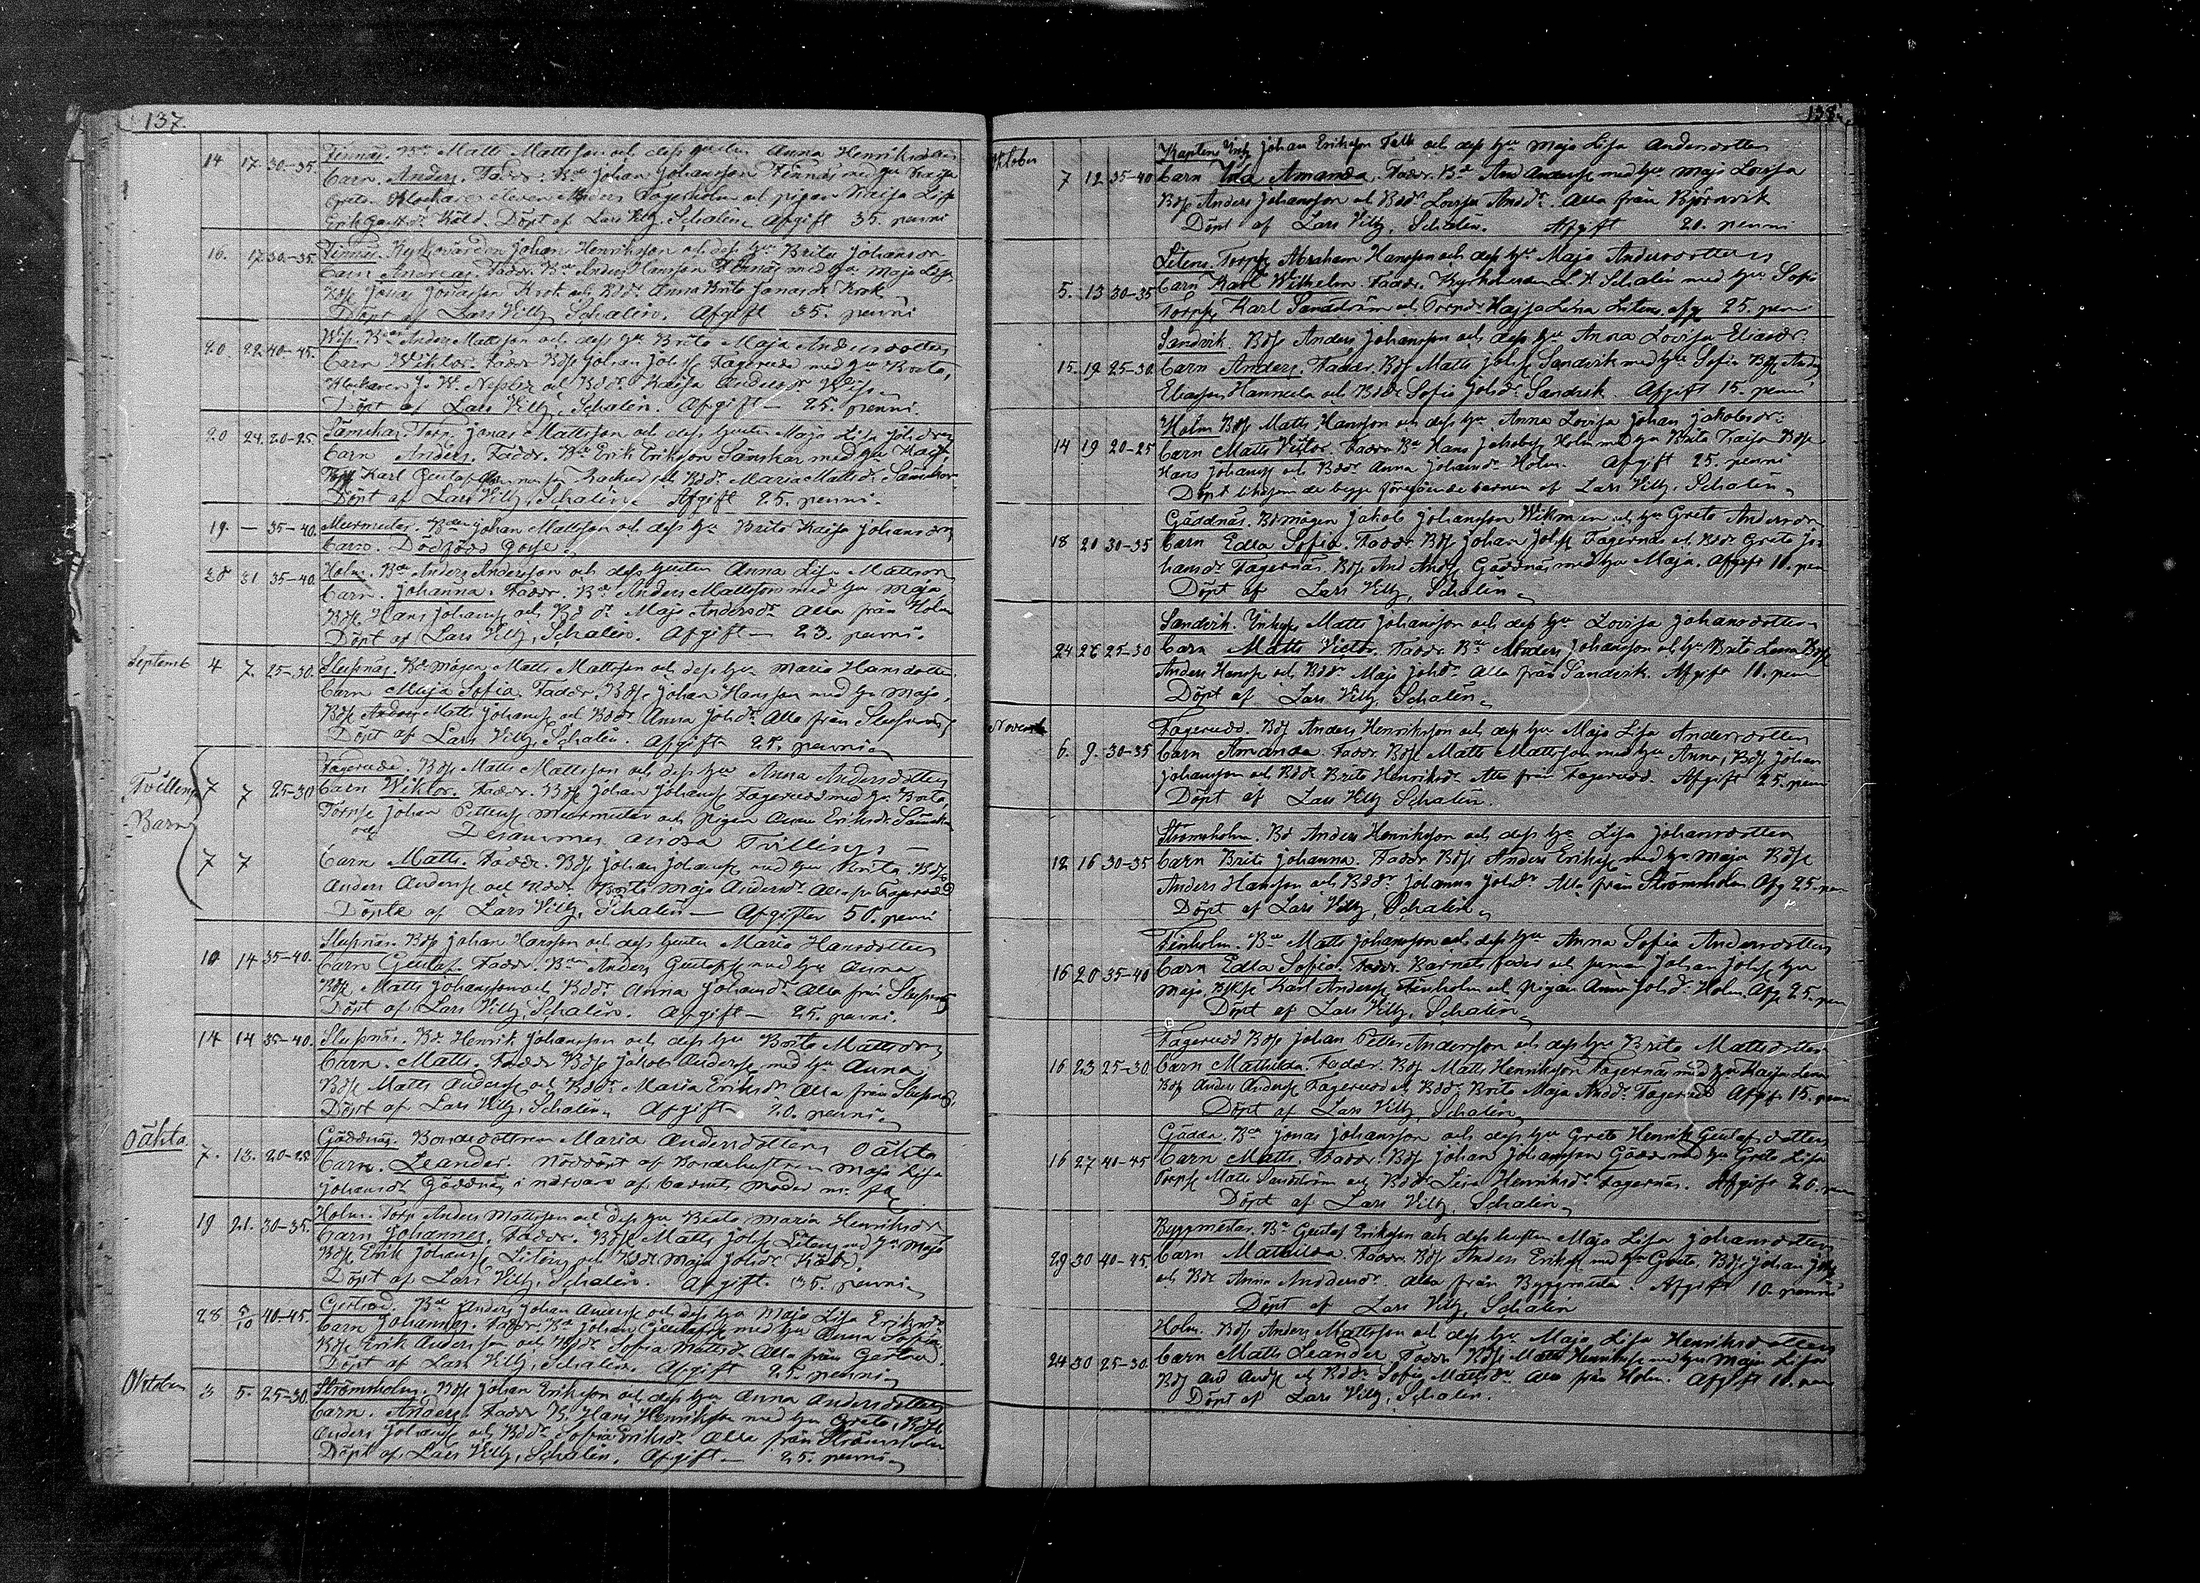 137.
14 17 30-35. Finnäs. Bde Matts Mattsson och dess hustru Anna Henriksdotter
Barn Anders. Faddr. Bde Johan Johansson Finnäs med hu Kaisa
Greta. Klockare eleven Anders Fagerholm och pigan Kaisa Lisa
Erik Gustdr Köld. Döpt af Lars Vilh. Schalin. Afgift 35. penni
16. 17 30-35. Finnäs. Kyrkovärden Johan Henriksson och dess hu Brita Johansdr
Barn Andreas. Faddr. Bde Anders Hansson Finnäs med hu Maja Lisa,
Bds Jonas Jonasson Krok och Bddr Anna Brita Jonasdr Krok
Döpt af Lars Vilh. Schalin. Afgift 35. penni
20. 22 40-45. Anders Mattsson och dess hu Brita Maja Andersdotter
Barn Wiktor. Faddr. Bds Johan Johss Fagerudd med hu Brita,
Klockaren J. W. och Bddr. Kaisa Andersdr
Döpt af Lars Vilh. Schalin. Afgift — 25. penni.
20 24. 20-25 Sämskar. Torp. Jonas Mattsson och dess hustru Maja Lisa Johsdotter
Barn Anders. Faddr. Bde Erik Eriksson Sämskar med hu Kaisa,
Karl Gustaf och Bddr. Maria Mattsdr. Sämskar
Döpt af Lars Vilh. Schalin. Afgift 25. penni.
19. — 35-40. Murmestar. Bden Johan Mattsson och dess hu Brita Kaisa Johansdotter
Barn. Dödfödd Gosse.
28 31 35-40. Holm. Bde Anders Andersson och dess hustru Anna Lisa Mattsdotter
Barn. Johanna. Faddr. Bde Anders Mattsson med hu Maja,
Bds Hans Johanss och Bd dr. Maja Andersdr. Alla från Holm
Döpt af Lars Vilh. Schalin. Afgift — 25. penni.
Septemb 4 7. 25-30. Slussnäs. Bdmågen Matts Mattsson och dess hu Maria Hansdotter
Barn Maja Sofia. Faddr. Bds. Johan Hansson med hu Maja,
Bds Matts Johanss och Bddr Anna Johsdr. Alla från Slussnäs
Döpt af Lars Vilh. Schalin. Afgift 25. penni.
Tvillingar
Barn
7 7 25-30 Fagerudd. Bds Matts Mattsson och dess hu Anna Andersdotter
Barn Wiktor. Faddr. Bds Johan Johanss Fagerudd med hu Brita,
Torps Johan Petterss Murmestar och Pigan Anna Eriksdr. Sämskar
och Desammas andra Tvilling —
7 7 Barn Matts. Faddr. Bds Johan Johanss med hu Brita. Bds
Anders Anderss och Bddr. Brita Maja Andersdr. Alla från Fagerudd
Döpte af Lars Vilh. Schalin — Afgifter 50. penni
10 14 35-40. Slussnäs. Bds Johan Hansson och dess hustru Maria Hansdotter
Barn Gustaf. Faddr. Bden Anders Gustafss med hu Anna
Bds. Matts Johansson och Bddr. Anna Johansdr. Alla från Slussnäs
Döpt af Lars Vilh. Schalin. Afgift — 25. penni.
14 14 35-40. Slussnäs. Bd. Henrik Johansson och dess hu Brita Mattsdotter
Barn. Matts. Faddr. Bds Jakob Anderss med hu Anna,
Bds Matts Anderss och Bddr. Maria Eriksdr. Alla från Slussnäs.
Döpt af Lars Vilh. Schalin. Afgift 20. penni.
Oäkta 7. 13. 20-25 Gäddnäs. Bondedottren Maria Andersdotters Oäkta
Barn. Leander. Nöddöpt af Bondehustrun Maja Lisa
Johansdr Gäddnäs i närvaro af barnets moder m. fl.
19 21. 30-35. Holm. Torp Anders Mattsson och dess hu Beata Maria Henriksdr
Barn Johannes. Faddr. Bds Matts Johss Litens med hu Maja
Bds Erik Johanss Litens och Bddr Maja Johsdr. Köld.
Döpt af Lars Vilh. Schalin. Afgift. 35. penni.
28 5/10 40-45. Gertrud. Bde Anders Johan Anderss och dess hu Maja Lisa Eriksdr
Barn Johannes. Faddr. Bde Johan Gustafss med hu Anna Sofia
Bds Erik Andersson och Bddr Sofia Mattsdr. Alla från Gertrud.
Döpt af Lars Vilh. Schalin. Afgift 25. penni.
Oktober 3 5. 25-30. Strömsholm. Bds Johan Eriksson och dess hu Anna Andersdotter
Barn. Anders. Faddr. B. Hans Henriksson med hu Greta, Bds
Anders Johanss och Bddr. Sofia Eriksdr. Alla från Strömsholm
Döpt af Lars Vilh. Schalin. Afgift — 25. penni.
138.
Oktober Kaptens Inhs Johan Eriksson Falk och dess hu Maja Lisa Andersdotter
7 12 35-40 Barn Ida Amanda. Faddr. Bde And Anderss med hu Maja Lovisa
Bds Anders Johansson och Bddr. Lovisa Andsdr. Alla från Björnvik
Döpt af Lars Vilh. Schalin. Afgift 20. penni
Litens. Torps Abraham Hansson och dess hu Maja Andersdotter
5. 13 30-35 Barn Karl Wilhelm. Faddr. Kyrkoherden L. V. Schalin med hu Sofia
Torps Karl Sandström och Torpdr Kajsa Lena Litens. afg 25. penni
Sandvik. Bds Anders Johansson och dess hu Anna Lovisa Eliasdr.
15. 19 25-30. Barn Anders. Faddr. Bds Matts Johss Sandvik med hu Sofia. Bds Anders
Eliasson Hannula och Bddr Sofia Johsdr. Sandvik. Afgift 15. penni
Holm Bds Matts Hansson och dess hu Anna Lovisa Johan Jakobsdr.
14 19 20-25 Barn Matts Victor. Faddr Bde Hans Jakobss Holm med hu Brita Kaisa Bds
Hans Johanss och Bddr. Anna Johansdr Holm. Afgift 25. penni
Döpt liksom de begge föregående barnen af Lars Vilh. Schalin.
Gäddnäs. Bdmågen Jakob Johansson Wikman och hu Greta Andersdr
18 20 30-35 Barn Edla Sofia. Faddr. Bds Johan Johss Fagernäs och Bddr Greta Jo-
hansdr Fagernäs. Bds And Ands Gäddnäs med hu Maja. Afgift 10. pen
Döpt af Lars Vilh. Schalin.
Sandvik. Inhys Matts Johansson och dess hu Lovisa Johansdotter
24 26 25-30 Barn Matts Victor. Faddr. Bde Anders Johansson och hu Brita Lena Bds
Anders Hanss och Bddr. Maja Johsdr. Alla från Sandvik. Afgift 10. penni
Döpt af Lars Vilh. Schalin.
Novemb Fagerudd. Bds Anders Henriksson och dess hu Maja Lisa Andersdotter
6. 9. 30-35 Barn Amanda. Faddr. Bds Matts Mattsson med hu Anna, Bds Johan
Johansson och Bddr Brita Henriksdr. Alla från Fagerudd. Afgift 25. penni
Döpt af Lars Vilh. Schalin.
Strömsholm. Bd Anders Henriksson och dess hu Lisa Johansdotter
12 16 30-35 Barn Brita Johanna. Faddr Bds Anders Erikss med hu Maja Bds
Anders Hansson och Bddr. Johanna Johsdr. Alla från Strömsholm Afg 25. pen
Döpt af Lars Vilh. Schalin.
Finholm. Bde Matts Johansson och dess hu Anna Sofia Andersdotter
16 20 35-40 Barn Edla Sofia. Faddr. Barnets fader och Johan Johss hu
Maja, Karl Anderss Finholm och pigan Anna Johsdr. Holm. Afg 25. pen
Döpt af Lars Vilh. Schalin.
Fagerudd Bds Johan Petter Andersson och dess hu Brita Mattsdotter
16 23 25-30 Barn Mathilda. Faddr. Bds Matts Henriksson Fagernäs med hu Kaisa Lena
Bds Anders Anderss Fagerudd och Bddr. Brita Maja Andsdr. Fagerudd Afgift 15. penni
Döpt af Lars Vilh. Schalin.
Gädda. Bde Jonas Johansson och dess hu Greta Henrik Gustafsdotter
16 27 40-45 Barn Matts. Faddr. Bds Johan Johansson Gädda med hu Greta Lisa
Torps Matts Sandström och Bddr. Lisa Henriksdr. Fagernäs. Afgift 20. pen
Döpt af Lars Vilh. Schalin.
Byggmestar. Bde Gustaf Eriksson och dess hustru Maja Lisa Johansdotter
29 30 40-45 Barn Mathilda. Faddr. Bds Anders Erikss med hu Greta. Bds Johan Johss
och Bddr Anna Andersdr. Alla från Byggmestar. Afgift 10. penni
Döpt af Lars Vilh. Schalin
Holm. Bds Anders Mattsson och dess hu Maja Lisa Henriksdotter
24 30 25-30. Barn Matts Leander. Faddr. Bds Matts Henrikss med hu Maja Lisa
Bds And Andss och Bddr. Sofia Mattsdr. Alla från Holm. Afgift 10. penni
Döpt af Lars Vilh. Schalin.